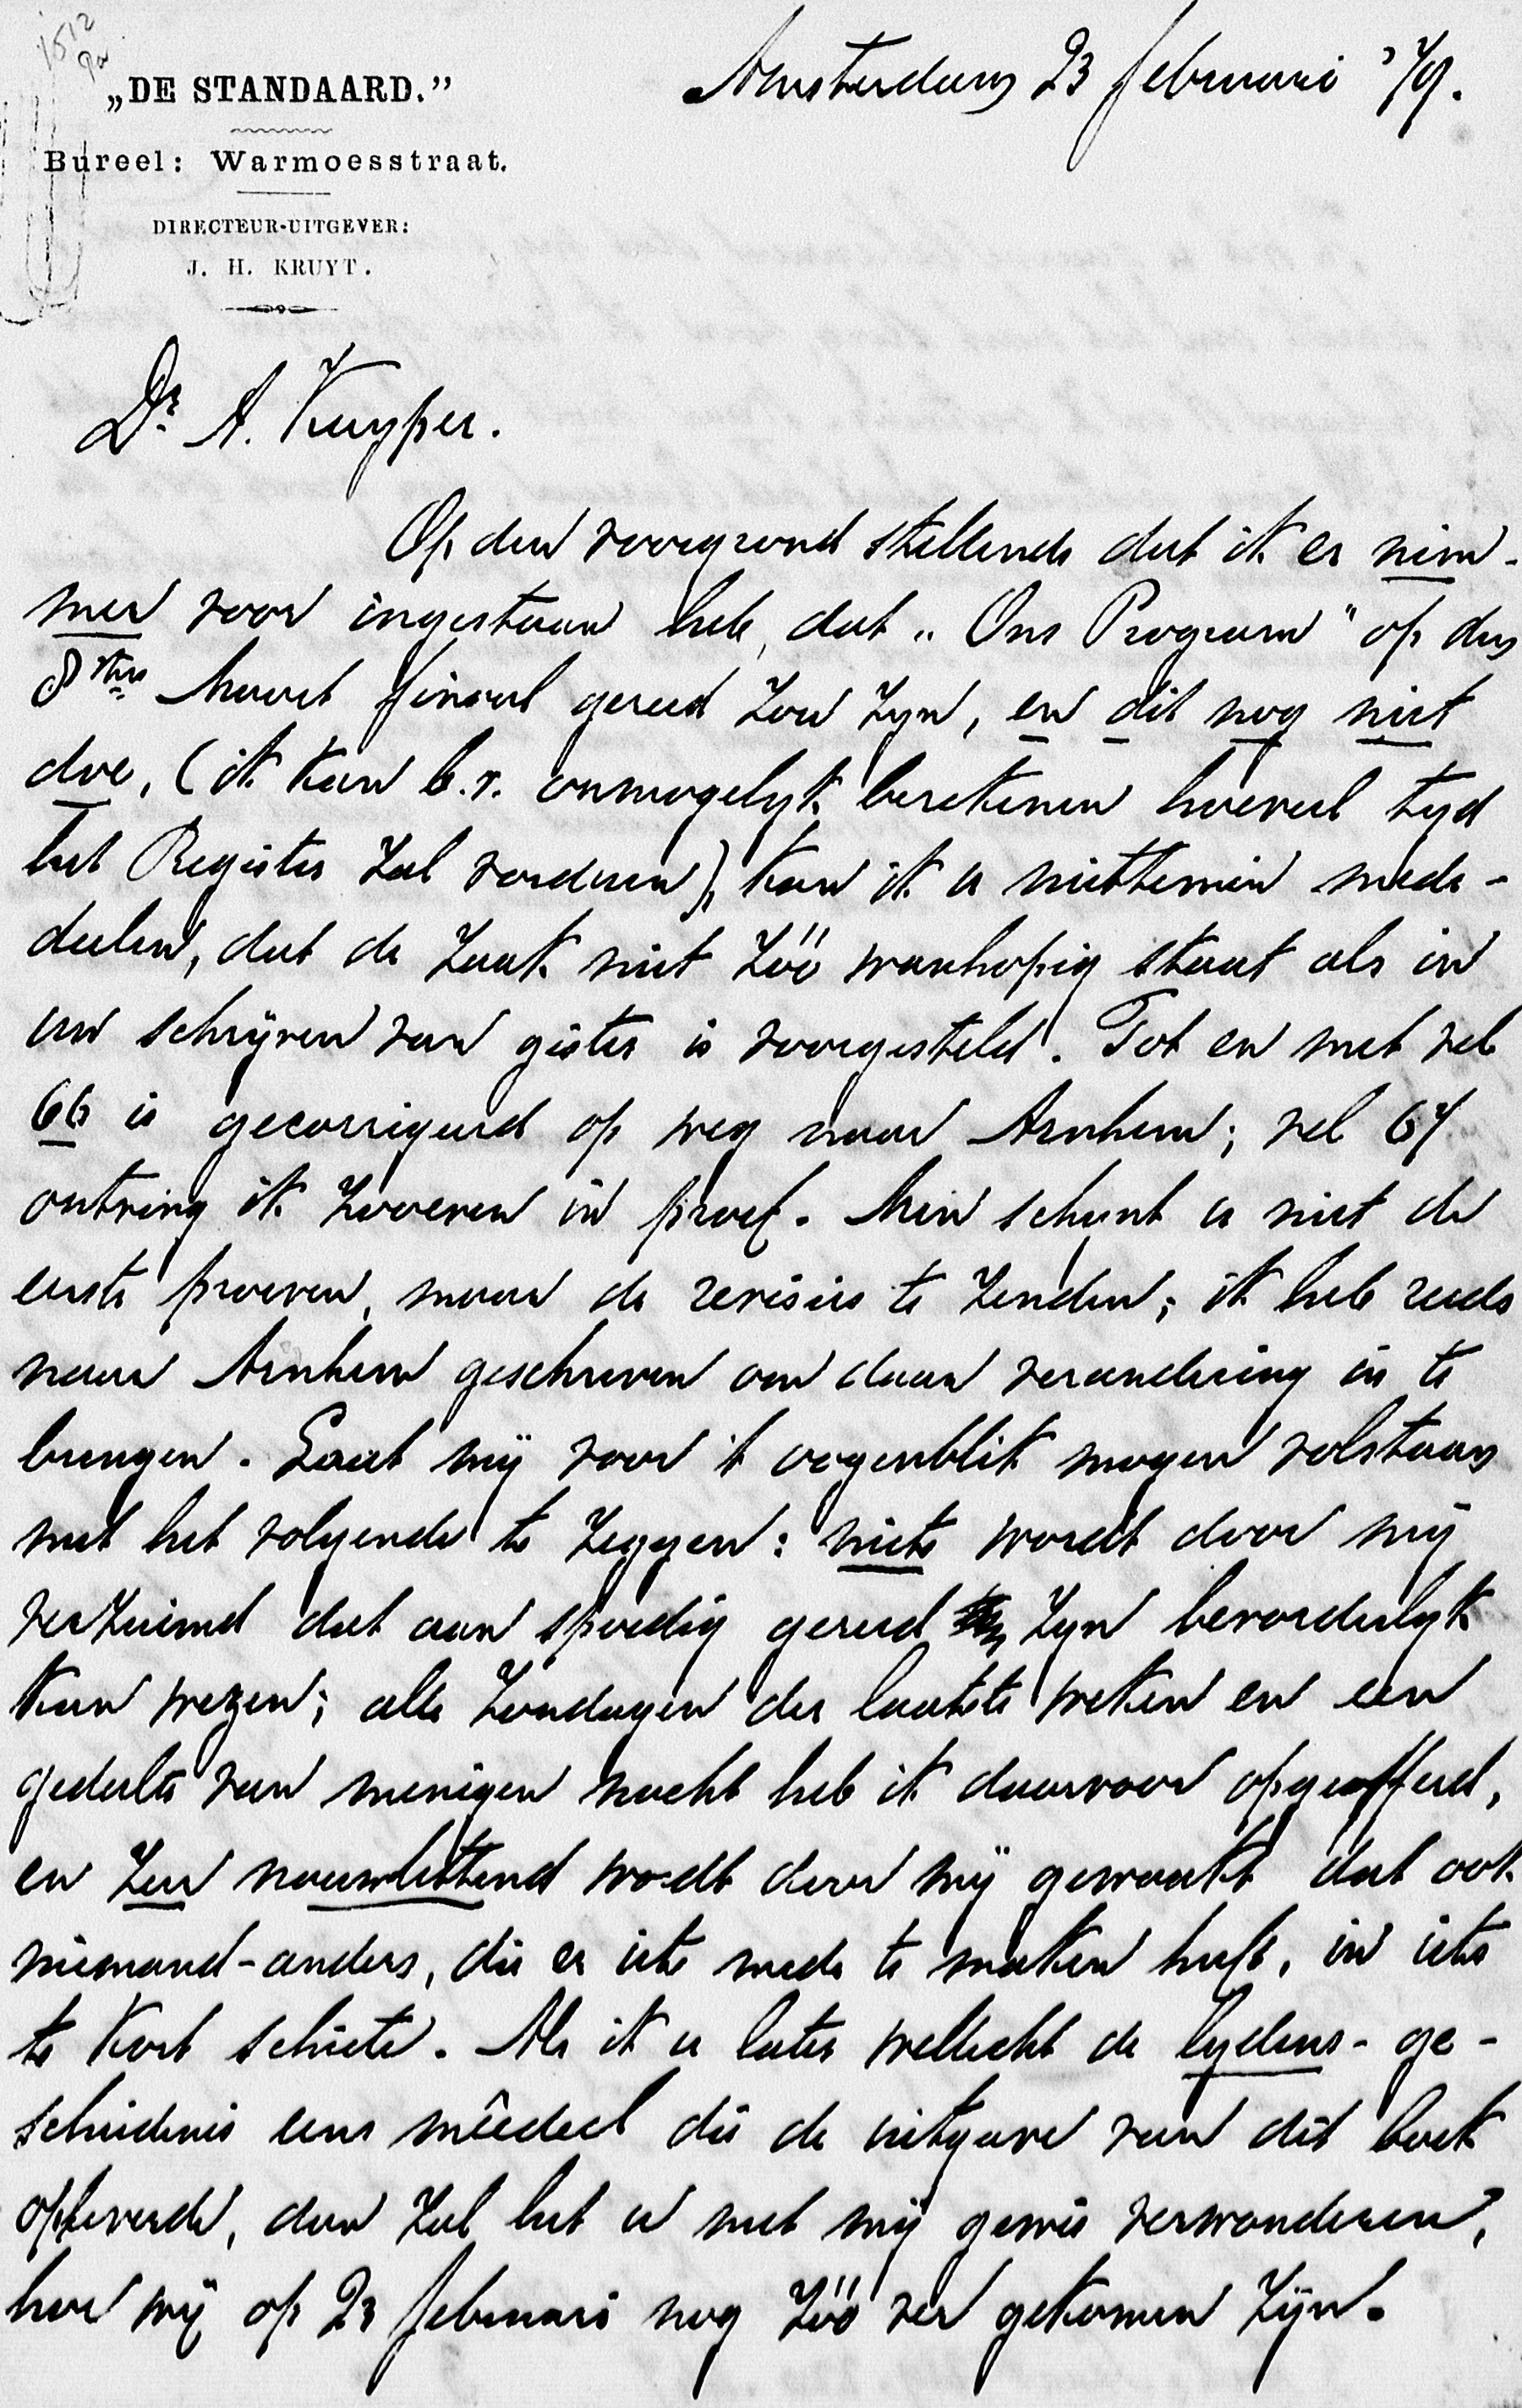 1512
„DE STANDAARD.”
Bureel: Warmoesstraat.
DIRECTEUR-UITGEVER:
J. H. KRUYT.
Amsterdam 23 februari '79.
Dr. A. Kuyper.
Op den voorgrond stellende dat ik er nim-
mer voor ingestaan heb, dat „Ons Program" op den
8sten Maart finaal gereed zou zyn, en dit nog niet
doe, (ik kan b.v. onmogelyk berekenen hoeveel tyd
het Register zal vorderen), kan ik u niettemin mede-
deelen, dat de zaak niet zóó wanhopig staat als in
uw schrijven van gister is voorgesteld. Tot en met vel
66 is gecorrigeerd op weg naar Arnhem; vel 67
ontving ik zooeven in proef. Men schynt u niet de
eerste proeven, maar de revisies te zenden; ik heb reeds
naar Arnhem geschreven om daar verandering in te
brengen. Laat mij voor 't oogenblik mogen volstaan
met het volgende te zeggen: niets wordt door mij
verzuimd dat aan spoedig gereed zyn bevorderlyk
kan wezen; alle Zondagen der laatste weken en een
gedeelte van menigen nacht heb ik daarvoor opgeofferd,
en zeer nauwlettend wordt door mij gewaakt dat ook
niemand-anders, die er iets mede te maken heeft, in iets
te kort schiete. Als ik u later wellicht de lydens-ge-
schiedenis eens mêedeel die de uitgave van dit boek
opleverde, dan zal het u met mij gewis verwonderen,
hoe wij op 23 februari nog zóó ver gekomen zijn.